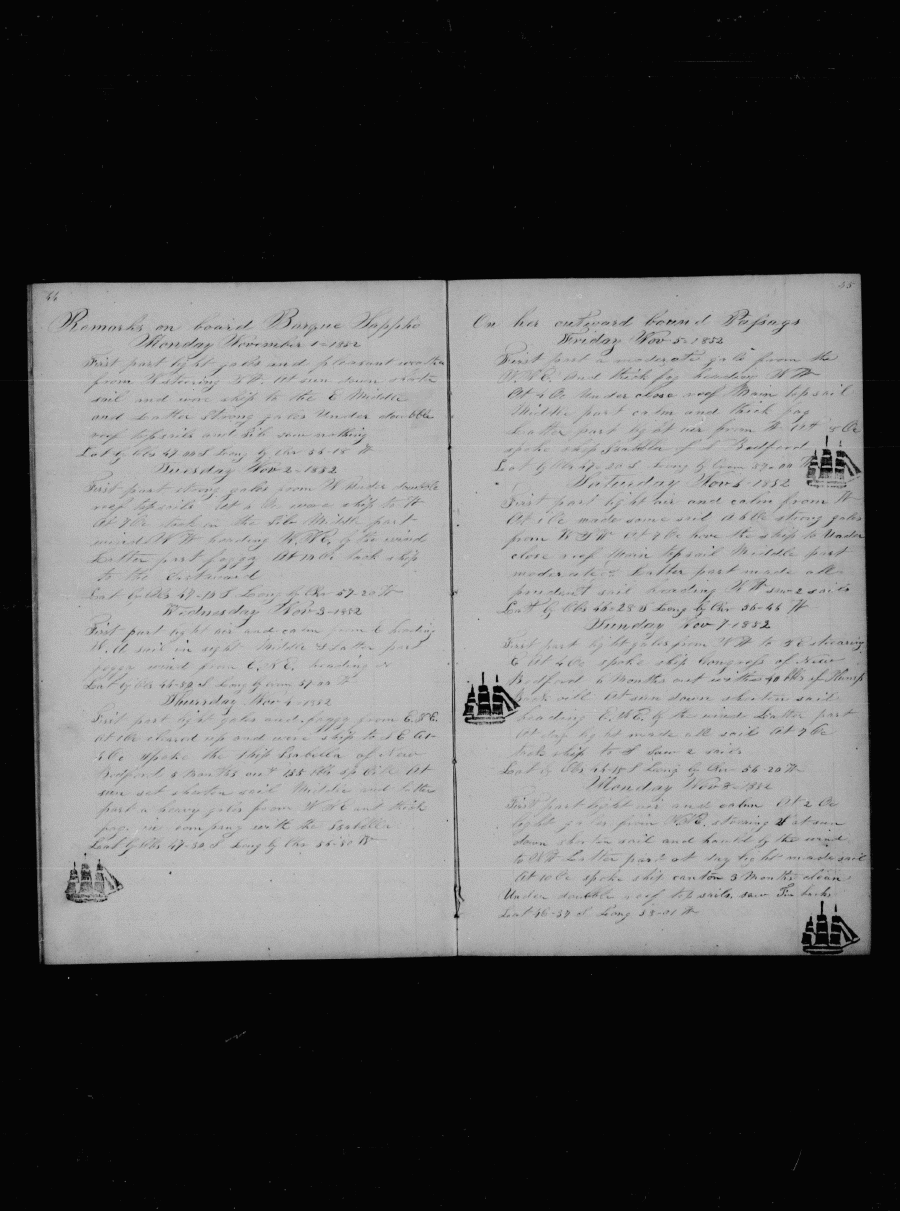 44
Remarks on board Barque Sappho
Monday November 1-1852
First part light gales and pleasant weather
from W stearing SW. At sun down shorten
sail and wore ship to the E Middle
and Latter strong gales Under double
reef topsails and Jib saw nothing
Lat by Obs 47-20 S Long by Chr 56-18 W
Tuesday Nov 2-1852
First part strong gales from W Under double
reef topsails At 4 Oc wore ship to W
At 7 Oc took in the Jib Middle part
wind W heading by the wind
Latter part foggy At 10 Oc tack ship
to the eastward
Lat by Obs 47-18 S Long by Chr 57-20 W
Wednesday Nov 3-1852
First part light air and calm from E heading
A sail in sight Middle & Latter part
foggy wind from E.N.E. heading
Lat by Obs S Long by Chr W
Thursday Nov 4-1852
First part light gales and foggy from E.N.E.
At 1 Oc cleard up and wore ship to S E At
4 Oc spoke the ship Isabella of New
Bedford 5 Months out 155 Bls sp Oil At
sun set shorten sail Middle and latter
part a heavy gales from and thick
fog in company with the Isabella
Lat by Obs 47-32 S Long by Chr W
45
On her outward bound Passage
Friday Nov 5-1852
First part a moderate gale from the
and thick fog heading
At 4 Oc Under close reef Main topsail
Middle part calm and thick fog
Latter part light air from the At 8 Oc
spoke ship Isabella of N Bedford
Lat by Obs 47-20 S Long by Chr 57-00 W
Saturday Nov 6-1852
First part light air and calm from W
At 1 Oc made some sail strong gales
from At 7 Oc hove the ship to Under
close reef Main topsail Middle part
moderate Latter part made all
prudent sail heading saw 2 sails
Lat by Obs 46-28 S Long by Chr 56-46 W
Sunday Nov 7-1852
First part light gales from to stearing
At 4 Oc spoke ship Congress of New
Bedford 4 Months out with 40 Bls of
Oil At sun down shorten sail
heading by the wind Latter part
At day light made all sail At 7 Oc
tack ship to S saw 2 sails
Lat by Obs 46-18 S Long by Chr 56-20 W
Monday Nov 8-1852
First part light air and calm At 2 Oc
light gales from stearing At sun
down shorten sail and hauld by the wind
to Latter part at day light made sail
At 10 Oc spoke ship Canton 3 Months clean
Under double reef topsails saw Fin backs
Lat 46-37 S Long 58-01 W